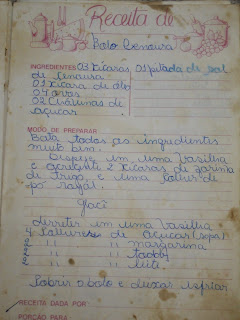 Receita de
Bolo Cenoura
INGREDIENTES 03 xícaras 01 pitada de sal
de cenoura
01 xícara de óleo
04 ovos
02 xícaras de
açucar
MODO DE PREPARAR
Bata todos os ingredientes
muito bem.
em uma vasilha
e acrescente 2 xicaras de farinha
de trigo, e uma colher de
pó royal.
Glacê
derreter em uma vasilha
4 colheres de açucar (sopa)
" " margarina
" " toddy
" " leite
cobrir o bolo e deixar esfriar
RECEITA DADA POR:
PORÇÃO PARA